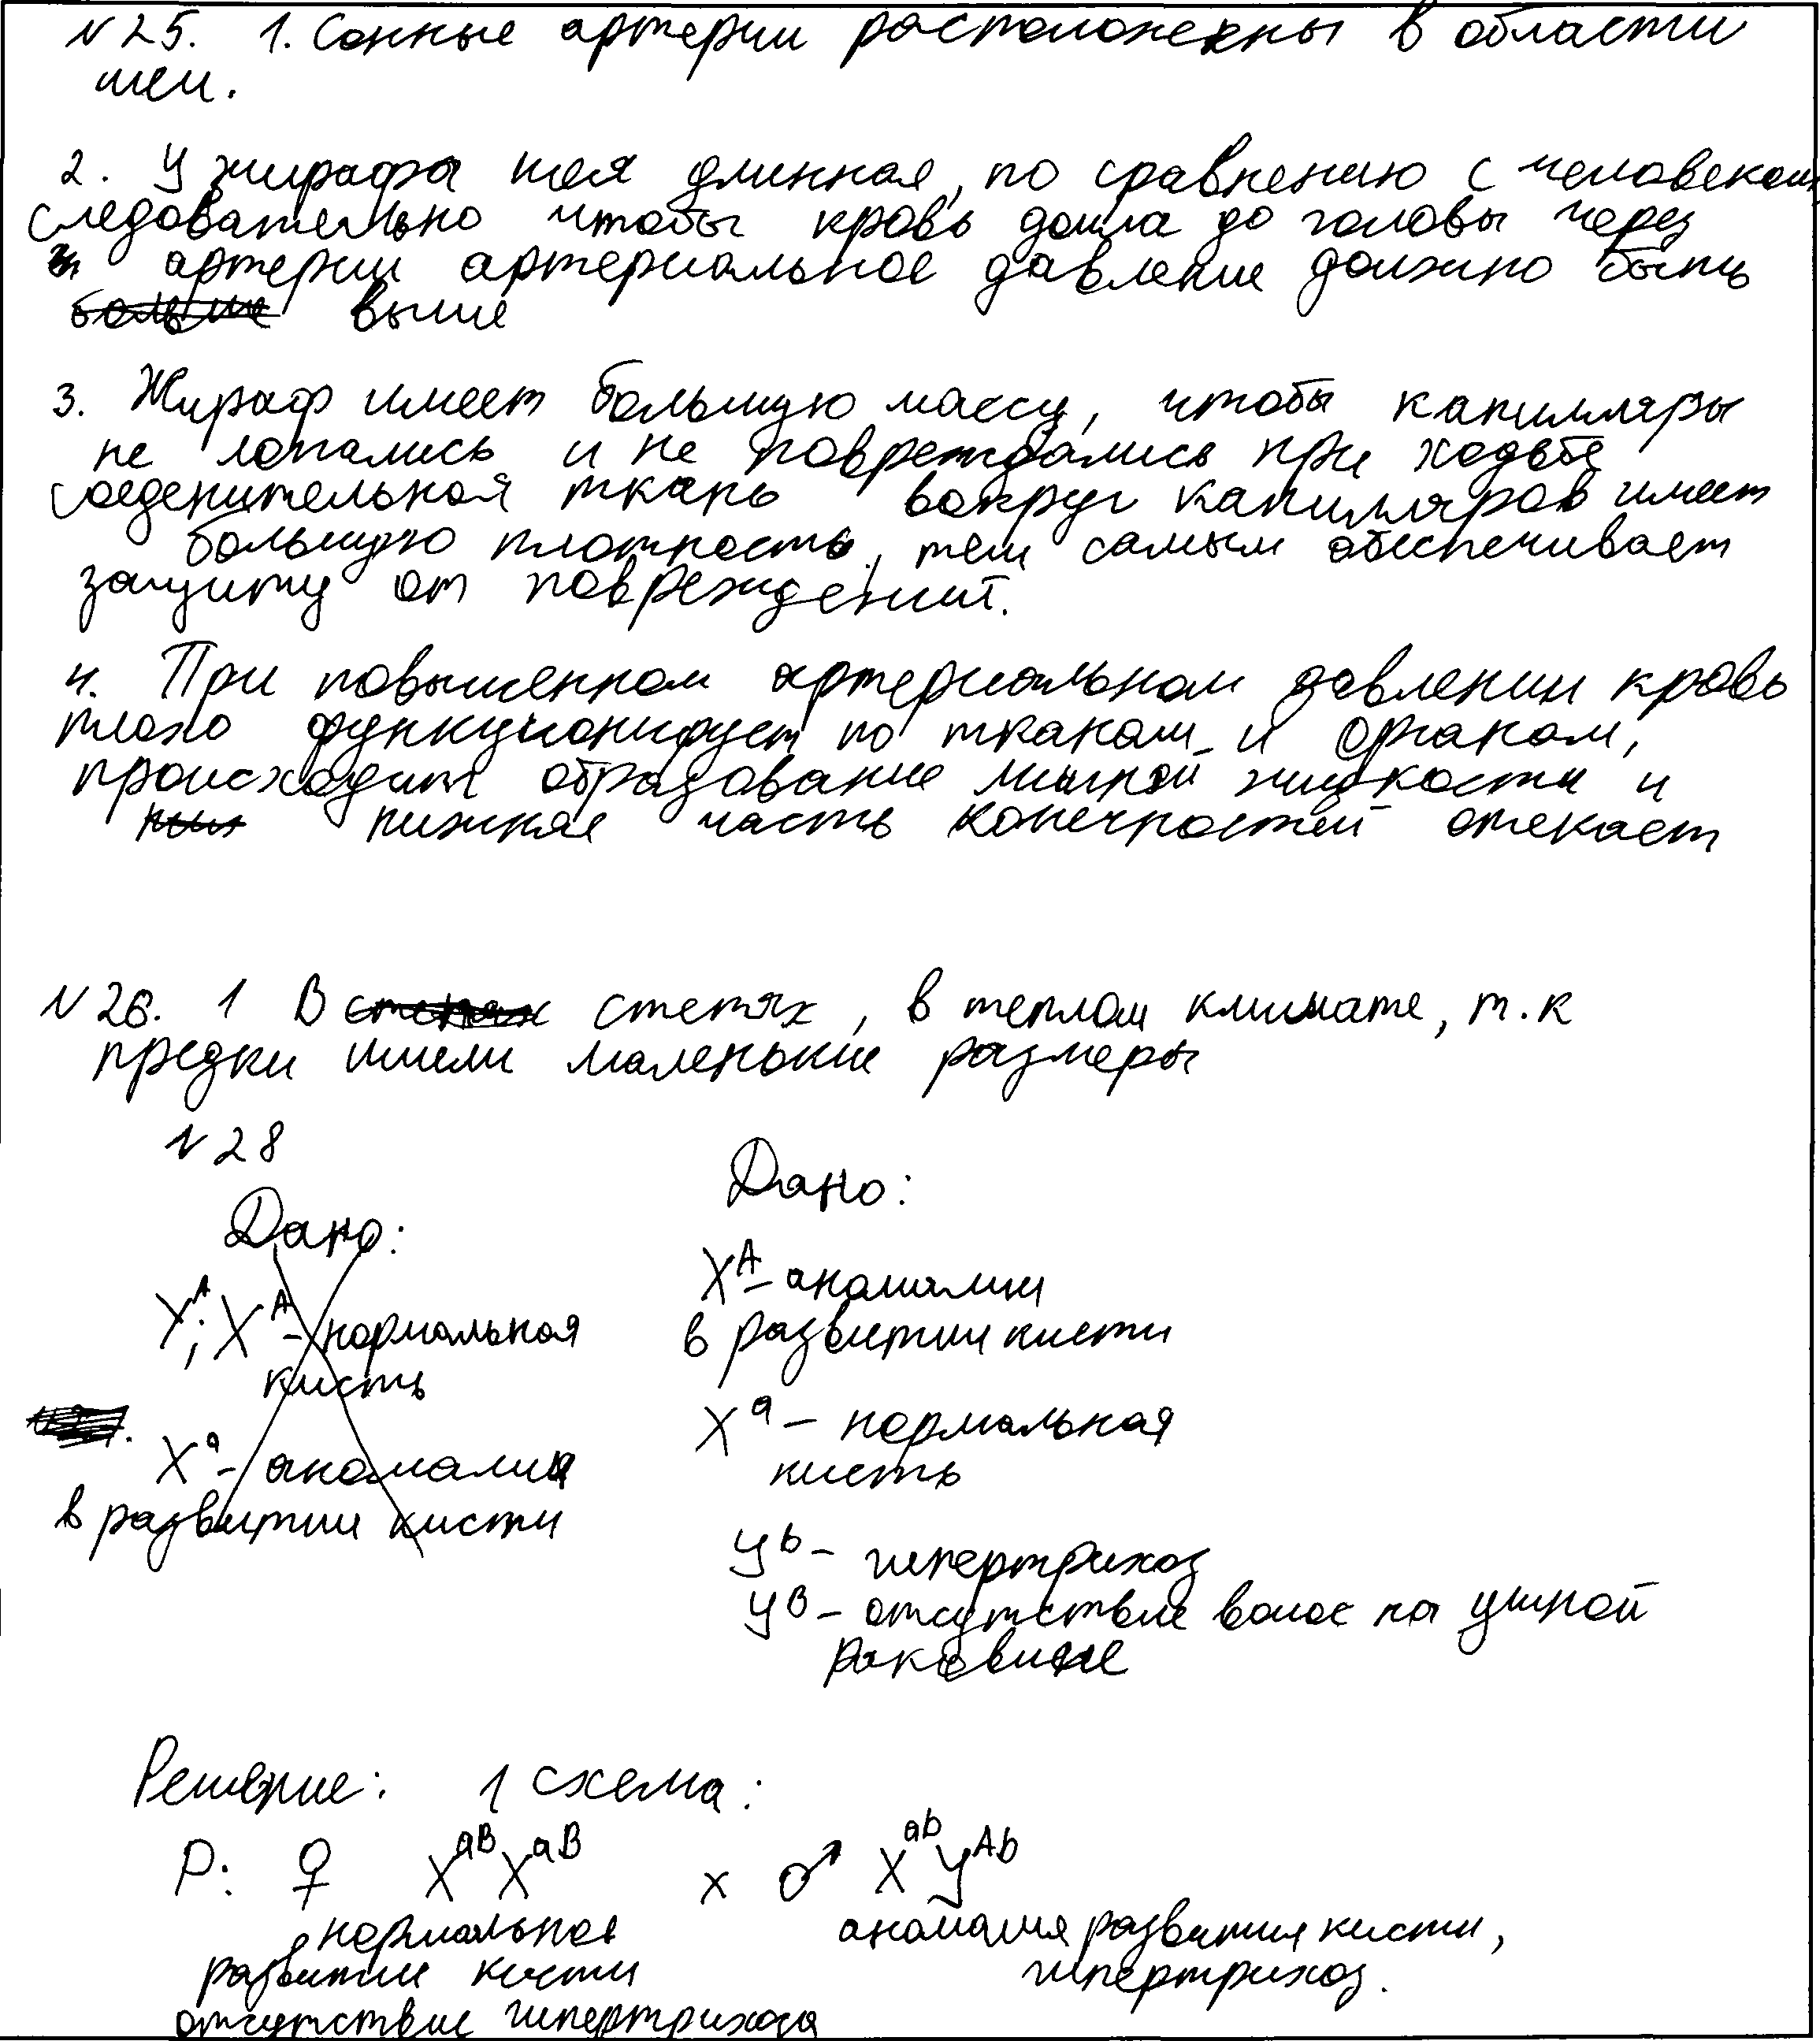 №25. 1. Сонные артерии расположенны в области
шеи.
2. У жирафа шея длинная, по сравнению с человеком,
следовательно чтобы кровь дошла до головы через
артерии артериальное давление должно быть
больше выше
3. Жираф имеет большую массу, чтобы капилляры
не лопались и не повреждались при ходьбе
соеденительная ткань вокруг капилляров имеет
большую плотность, тем самым обеспечивает
защиту от повреждений.
4. При повышенном артериальном давлении кровь
плохо функционирует по тканам и органам,
происходит образование лишней жидкости и
ниж нижняя часть конечностей отекает
№26. 1 В степях степях, в теплом климате, т.к
предки имели маленькие размеры
№28
Дано:
Y^A; X^A – нормальная
кисть
X^a – аномалия
в развитии кисти
Дано:
X^A – аномалии
в развитии кисти
X^a – нормальная
кисть
Y^b – гипертрихоз
Y^B – отсутствие волос на ушной
раковине
Решение: 1 схема:
P: ♀ X^aB X^aB x ♂ X^ab Y^Ab
нормальное аномалия развития кисти,
развитие кисти гипертрихоз.
отсутствие гипертрихоза